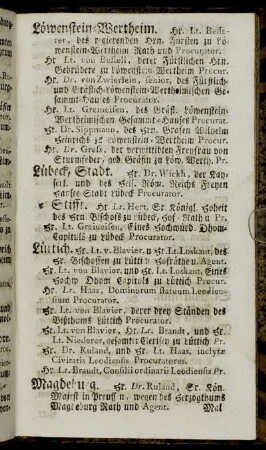 Löwenstein-Wertheim. Hr. Lt. Besse-
rer, des regierenden Hn. Fürsten zu Lö-
wenstein-Wertheim Rath und Procurator.
Hr Lt. von Bosteli, derer Fürstlichen Hn.
Gebrüdere zu Löwenstein-Wertheim Procur.
Hr. Dr. von Zwierlein, senior, des Fürstlich-
und Gräflich-Löwenstein-Wertheimischen Ge-
sammt-Hauses Procurator.
Hr. Lt. Greineisen, des Gräfl. Löwenstein-
Wertheimischen Gesammt-Hauses Procurat.
Hr. Dr. Sippmann, des Hrn. Grafen Wilhelm
Heinrichs zu Löwenstein-Wertheim Procur.
Hr. Dr. Greß, der verwittibten Freyfrau von
Sturmfeder, geb. Gräfin zu Löw. Werth. Pr.
Lübeck, Stadt. Hr. Dr. Wickh, der Kay-
serl. und des Heil. Röm. Reichs Freyen
Hansee-Stadt Lübeck Procurator.
Stifft. Hr Lt. Hert. Sr Königl. Hoheit
des Hrn Bischofs zu Lübeck, Hof-Rath u Pr.
Hr. Lt. Greineisen, Eines Hochwürd. Dhom-
Capituls zu Lübeck Procurator.
Lüttich. Hr. Lt. v. Blavier, u Hr. Lt. Loskant, des
Hr. Bischoffen zu Lüttich Hofräthe u. Agent.
Hr. Lt. von Blavier, und Hr. Lt. Loskant, Eines
Hochw Dhom Capituls zu Lüttich Procur.
Hr. Lt. Haas, Dominorum statuum Leodien-
sium Procurator.
Hr. Lt. von Blavier, derer drey Ständen des
Bißthums Lüttich Procurator.
Hr. Lt. von Blavier, Hr. Lt. Brandt, und Hr.
Lt. Niederer, gesamter Clerisey zu Lüttich Pr.
Hr. Dr. Ruland, und Lt. Haas, inclytæ
Civitatis Leodiensis Procuratores.
Hr. Lt. Brandt, Consilii ordinarii Leodiensis Pr.
Magdeburg. Hr. Dr. Ruland, Sr. Kön.
Majest in Preussen, wegen des Herzogthums
Magdeburg Rath und Agent.
Mal